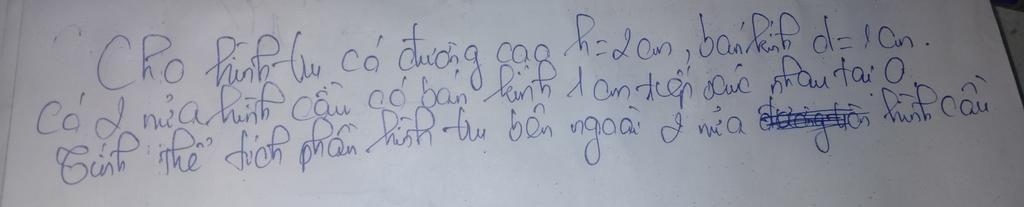 Cho hình trụ có đường cao h = 2cm, bán kính d = 1cm.
Có 2 nửa hình cầu có bán kính 1cm tiếp xúc nhau tại O
Tính thể tích phần hình trụ bên ngoài 2 nửa hình cầu